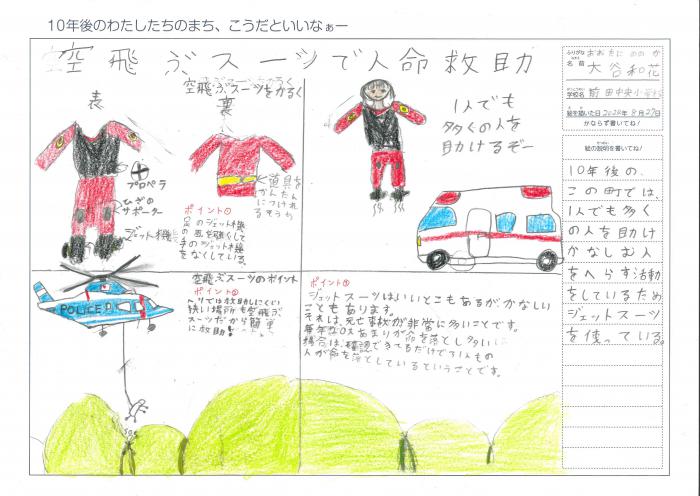 10年後のわたしたちのまち、こうだといいなぁー
空飛ぶスーツで人命救助
空飛ぶスーツをかるく
表
裏
プロペラ
ひざの
サポーター
ジェット機
道具を
かんたん
につけれ
るそうち
ポイント①
の風を強くして
手のジェット機
をなくしている。
1人でも
多くの人を
助けるぞー
POLICE
空飛ぶスーツのポイント
ポイント①
ヘリでは救助しにくい
狭い場所も空飛ぶ
スーツだから簡単
に救助!
ポイント①
ジェットスーツはいいとこもあるが、かなしい
こともあります。
それは、死亡事故が非常に多いことです。
人が命を落としているということです。
ふりがな
名前
大谷和花
学校名
前田中央小学校
絵を描いた日 2024年 8月27日
かならず書いてね!
絵の説明を書いてね!
10年後の、
この町では、
1人でも多く
の人を助け
かなしむ人
をへらす活動
をしているため
ジェットスーツ
を使っている。